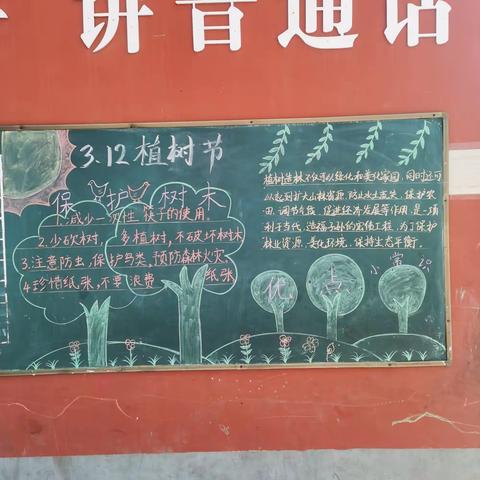 讲普通话
3.12植树节
保护树木
1.减少一次性筷子的使用。
2.少砍树,多植树,不破坏树木
3.注意防虫,保护鸟类,预防森林火灾。
4.珍惜纸张,不要浪费纸张
植树造林不仅可以绿化和美化家园,同时还可
以起到扩大山林资源,防止水土流失,保护农
田,调节气候,促进经济发展等作用,是一项
利于当代,造福子孙的宏伟工程,为了保护
林业资源,美化环境,保持生态平衡。
小常识
优点